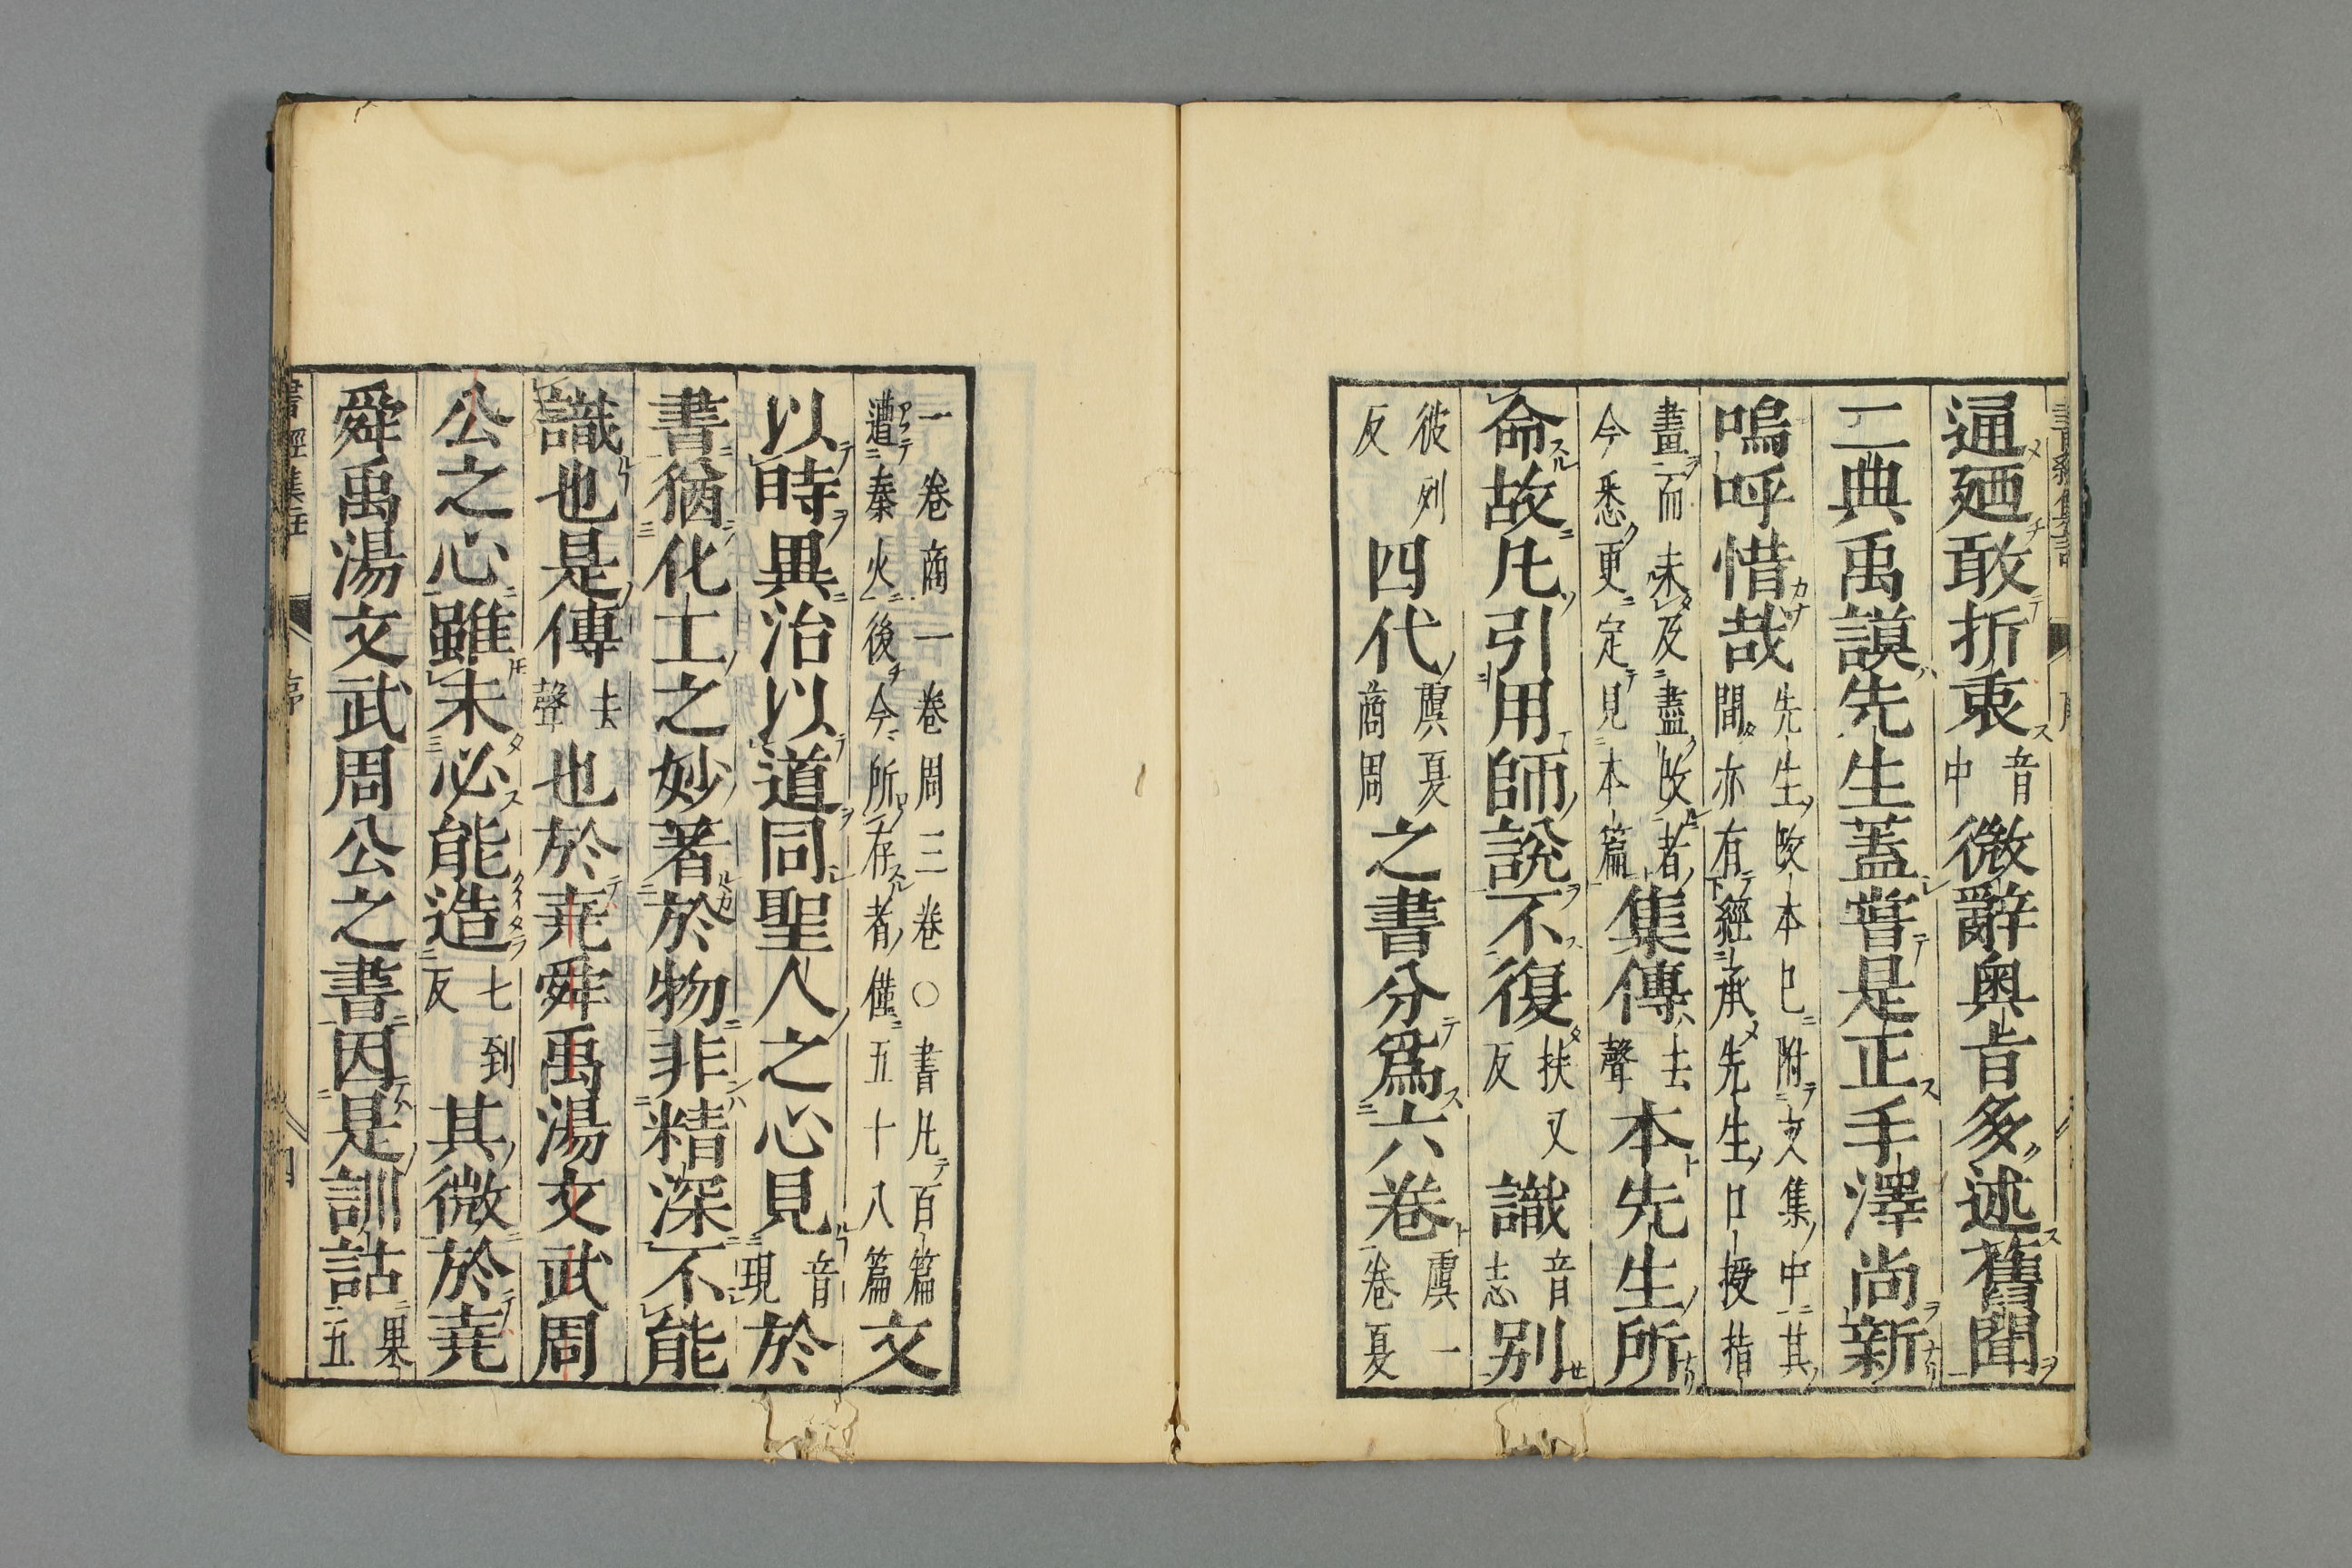 通廼敢折衷音中微辭奥旨多述舊聞
二典禹謨先生蓋嘗是正手澤尚新
嗚呼惜哉先生改本已附文集中其間亦有經承先生口授指
畫而未及盡改者今悉更定見本篇集傳去聲本先生所
命故凡引用師說不復扶又反識音志別
彼列反四代虞夏商周之書分爲六卷虞一卷夏
一卷商一卷周三卷○書凡百篇遭秦火後今所存者僅五十八篇文
以時異治以道同聖人之心見音現於
書猶化工之妙著於物非精深不能
識也是傳去聲也於尭舜禹湯文武周
公之心雖未必能造七到反其微於尭
舜禹湯文武周公之書因是訓詁果五
書經集註 序